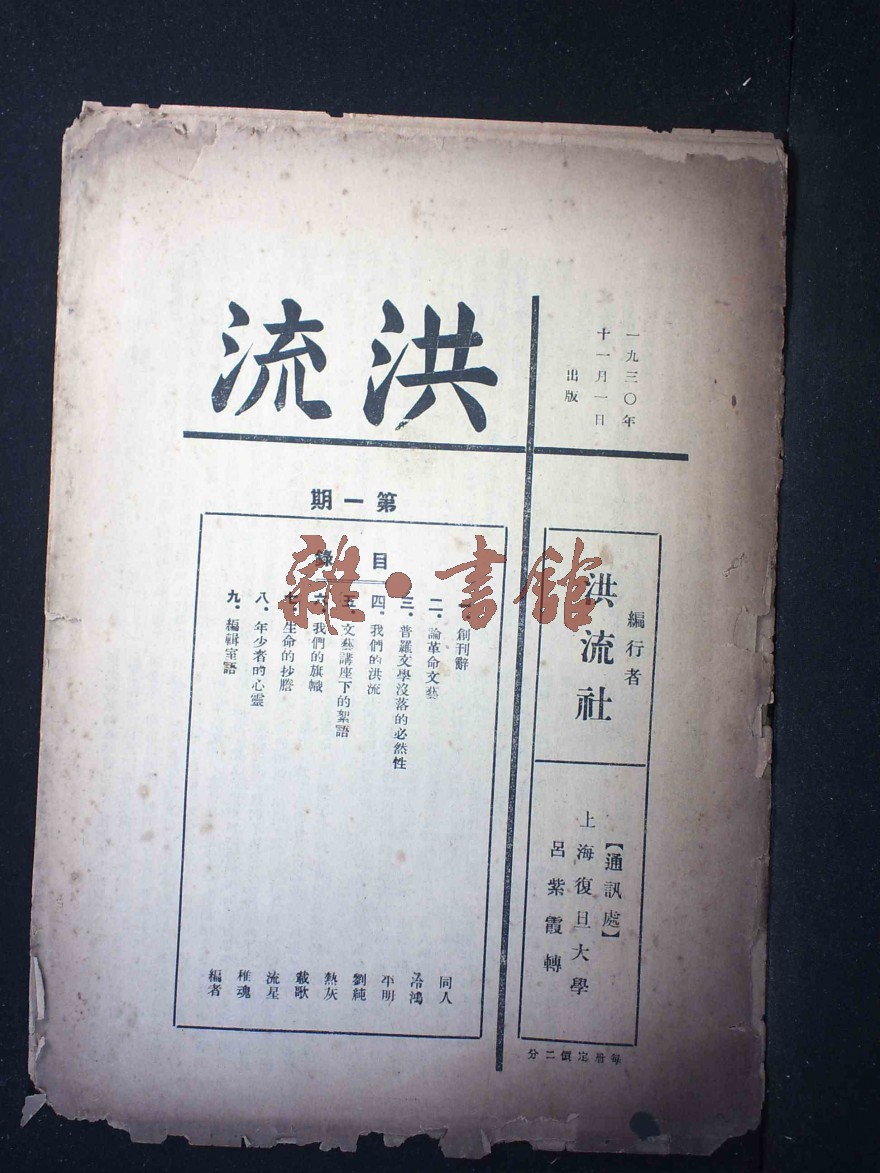 洪流
一九三〇年
十一月一日
出版
第一期
編行者
洪流社
【通訊處】
上海復旦大學
呂紫霞轉
每册定價二分
目錄
一、創刊辭 同人
二、論革命文藝 洽鴻
三、普羅文學沒落的必然性 平明
四、我們的洪流 劉純
五、文藝講座下的絮語 熱灰
六、我們的旗幟 載歌
七、生命的抄謄 流星
八、年少者的心靈 稚魂
九、編輯室語 編者
雜·書館